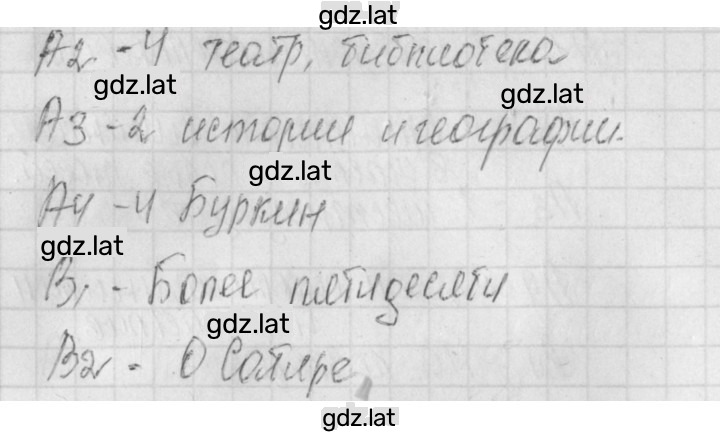 gdz.lat
А2 - 4 театр, библиотека
gdz.lat
gdz.lat
А3 - 2 истории и географии.
gdz.lat
А4 - 4 Буркин
gdz.lat
В1 - Более пятидесяти
gdz.lat
В2 - О Сатире
gdz.lat